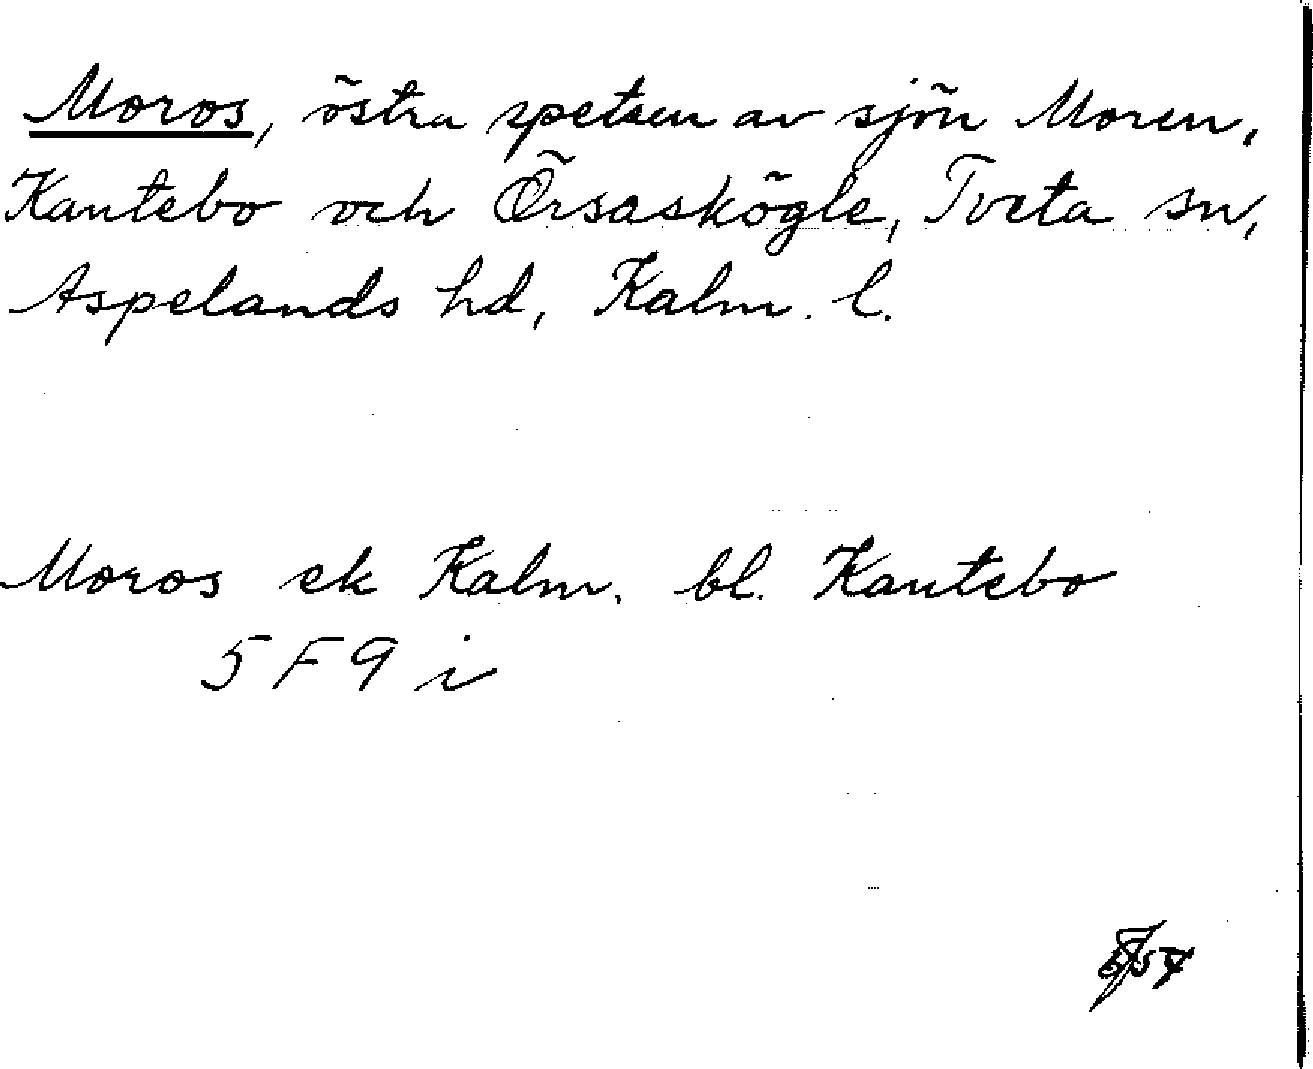 Moros, östra spetsen av sjön Moren,
Kantebo och Örsaskögle, Tveta sn,
Aspelands hd, Kalm. l.
Moros ek Kalm. bl. Kantebo
5 F 9 i